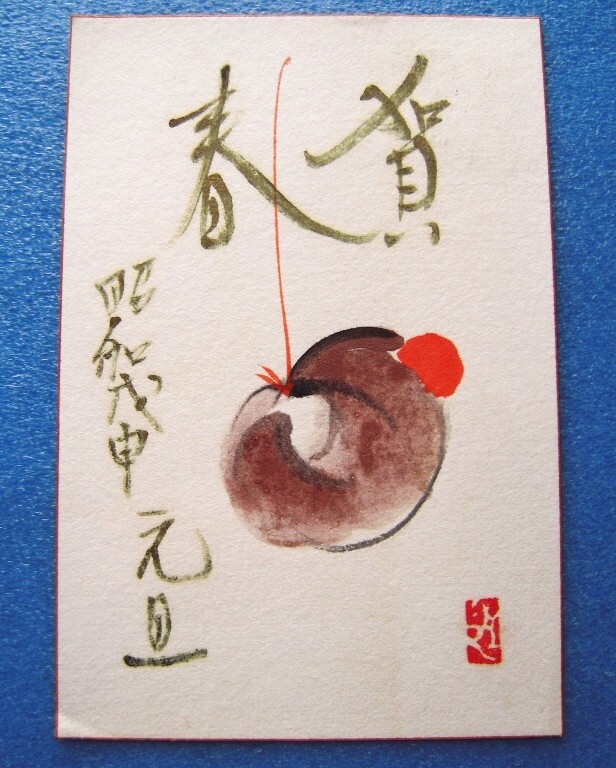 賀春
昭和戊申 元旦